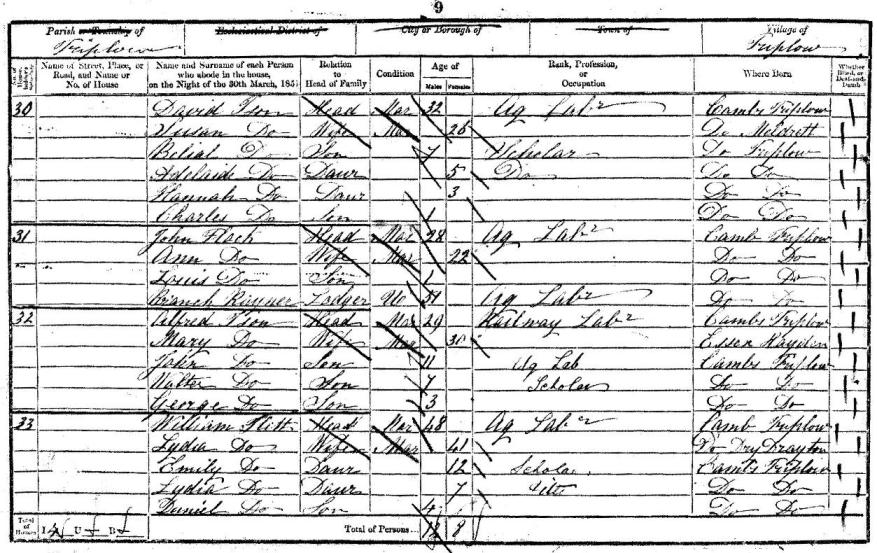 9
Parish or Township of Ecclesiastical District of City or Borough of Town of Village of
Triplow Triplow
Name of Street, Place, or Road, and Name or No. of House
Name and Surname of each Person who abode in the house, on the Night of the 30th March, 1851
Relation to Head of Family
Condition
Age of
Males Females
Rank, Profession, or Occupation
Where Born
Whether Blind, or Deaf-and-Dumb
30 David Ison Head Mar 32 Ag Labr Cambs Triplow
Susan Do Wife Mar 26 Do Meldreth
Belial Do Son 7 Scholar Do Triplow
Adelaide Do Daur 5 Do Do Do
Hannah Do Daur 3 Do Do
Charles Do Son 1 Do Do
31 John Flack Head Mar 28 Ag Labr Camb Triplow
Ann Do Wife Mar 22 Do Do
Louis Do Son 1 Do Do
Branch Rayner Lodger Un 51 Ag Labr Do Do
32 Alfred Ison Head Mar 29 Railway Labr Cambs Triplow
Mary Do Wife Mar 30 Essex
John Do Son 11 Ag Lab Cambs Triplow
Walter Do Son 7 Scholar Do Do
George Do Son 3 Do Do
33 William Flitt Head Mar 48 Ag Labr Camb Triplow
Lydia Do Wife Mar 41 Do Dry Drayton
Emily Do Daur 12 Scholar Cambs Triplow
Lydia Do Daur 7 Ditto Do Do
Daniel Do Son 4 Do Do
Total of Houses I 4 U B Total of Persons... 12 8